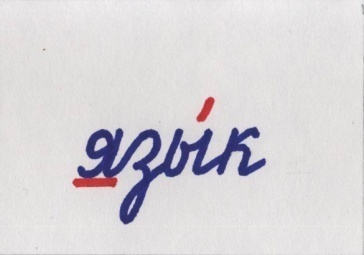 язы́к